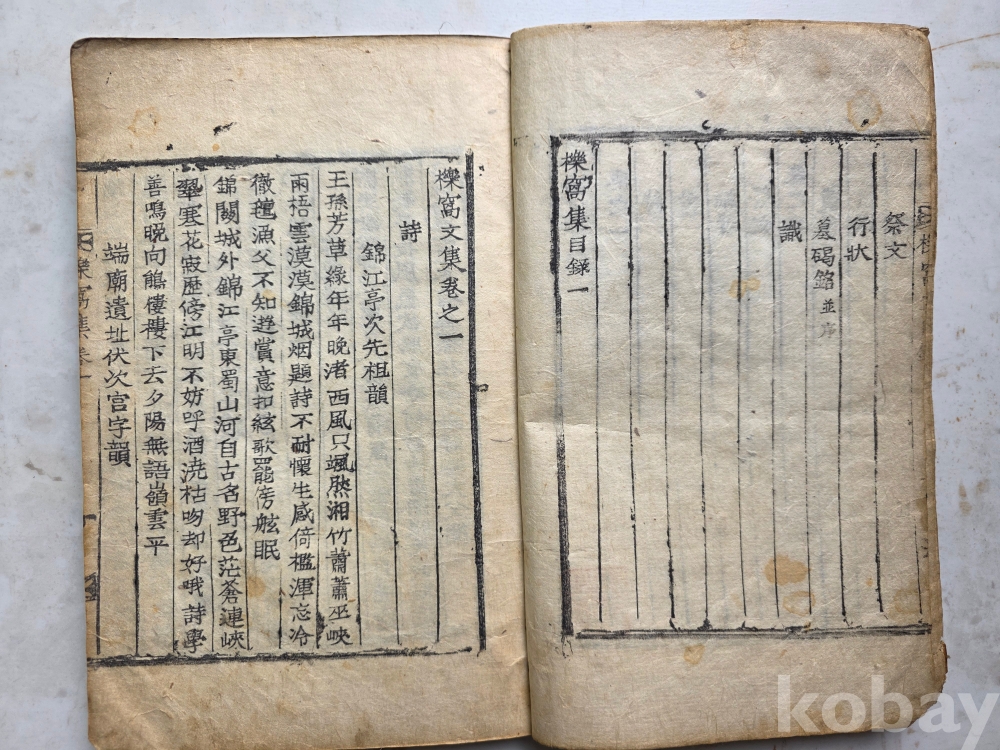 祭文
行狀
墓碣銘 並序
識
櫟窩集目錄一
櫟窩文集卷之一
詩
錦江亭次先祖韻
王孫芳草緣年年晚渚西風只颯然湘竹蕭蕭巫峽
雨梧雲漠漠錦城烟題詩不耐懷生感倚檻渾忘冷
徹氊漁父不知遊賞意扣絃歌罷傍舷眠
錦闕城外錦江亭東蜀山河自古名野色茫蒼連峽
寒花寂歷傍江明不妨呼酒澆枯吻却好哦詩學
善鳴晚向鵑樓樓下去夕陽無語嶺雲平
端廟遺址伏次宮字韻
櫟窩集卷一
kobay